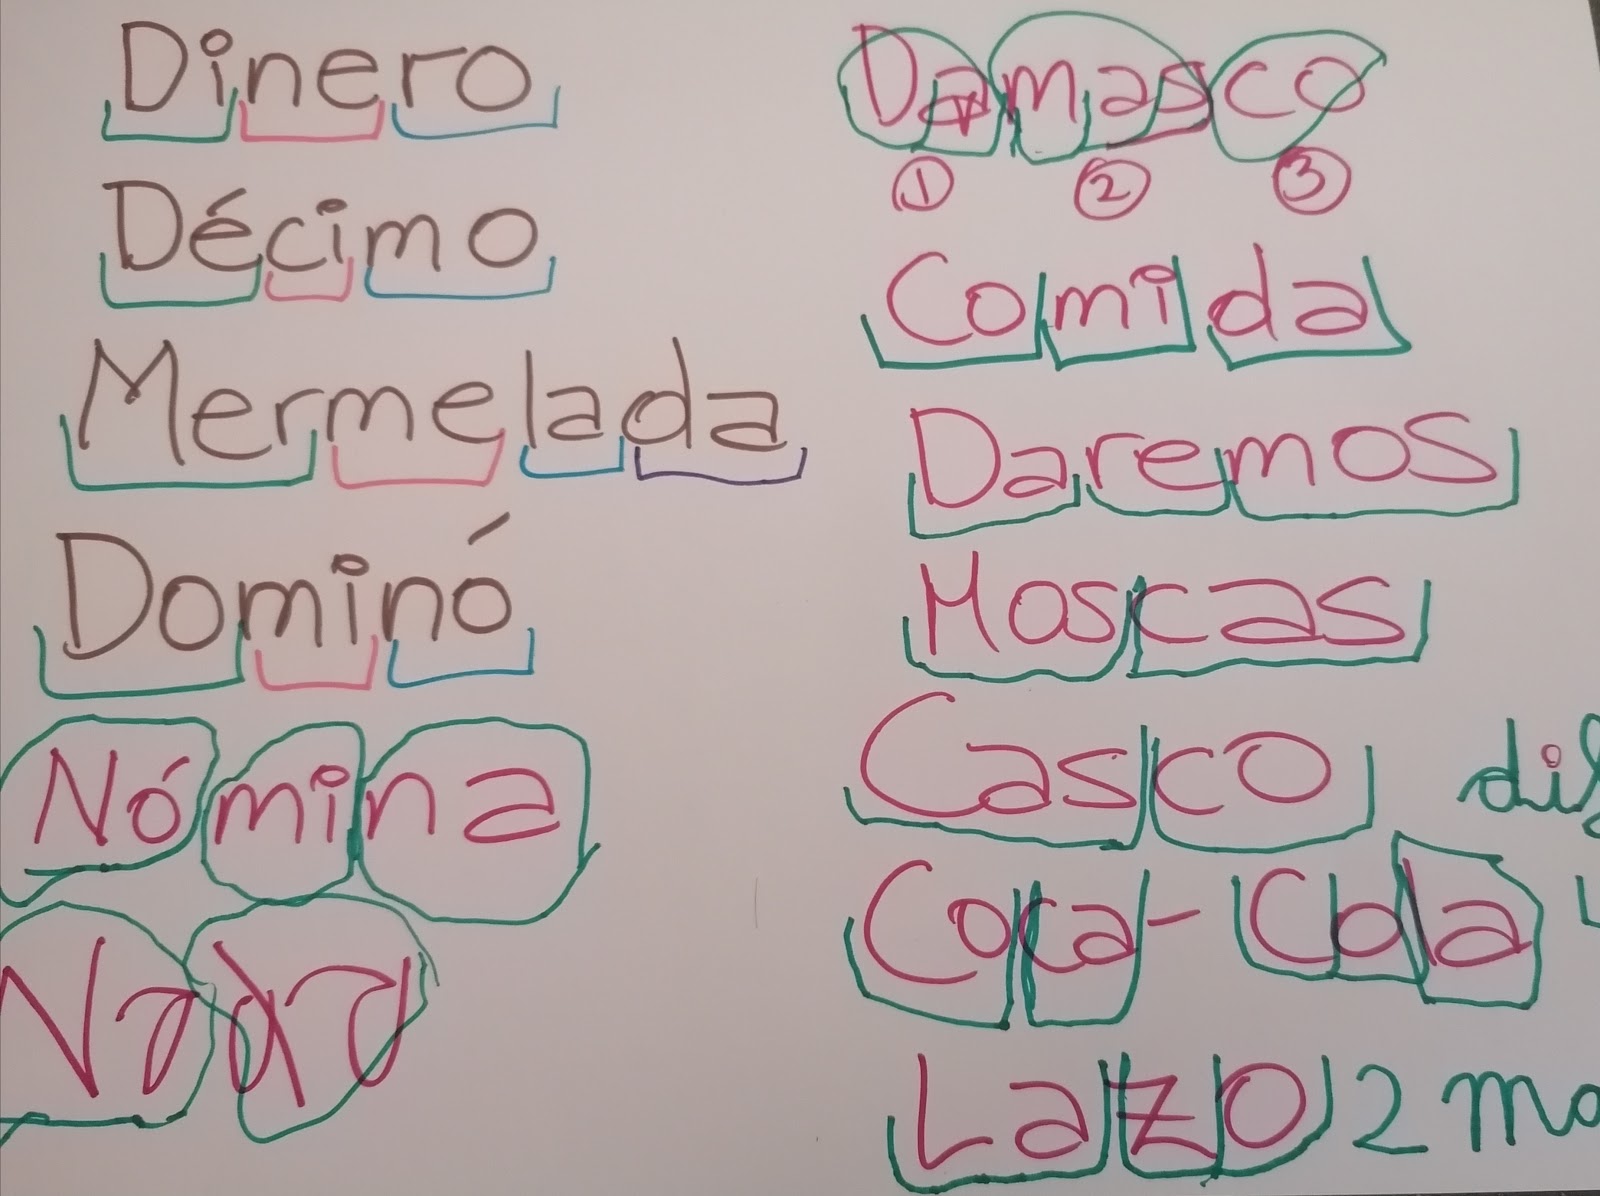 Dinero
Décimo
Mermelada
Dominó
Nómina
Nada
Damasco
1 2 3
Comida
Daremos
Moscas
Casco
Coca-Cola
Lazo 2